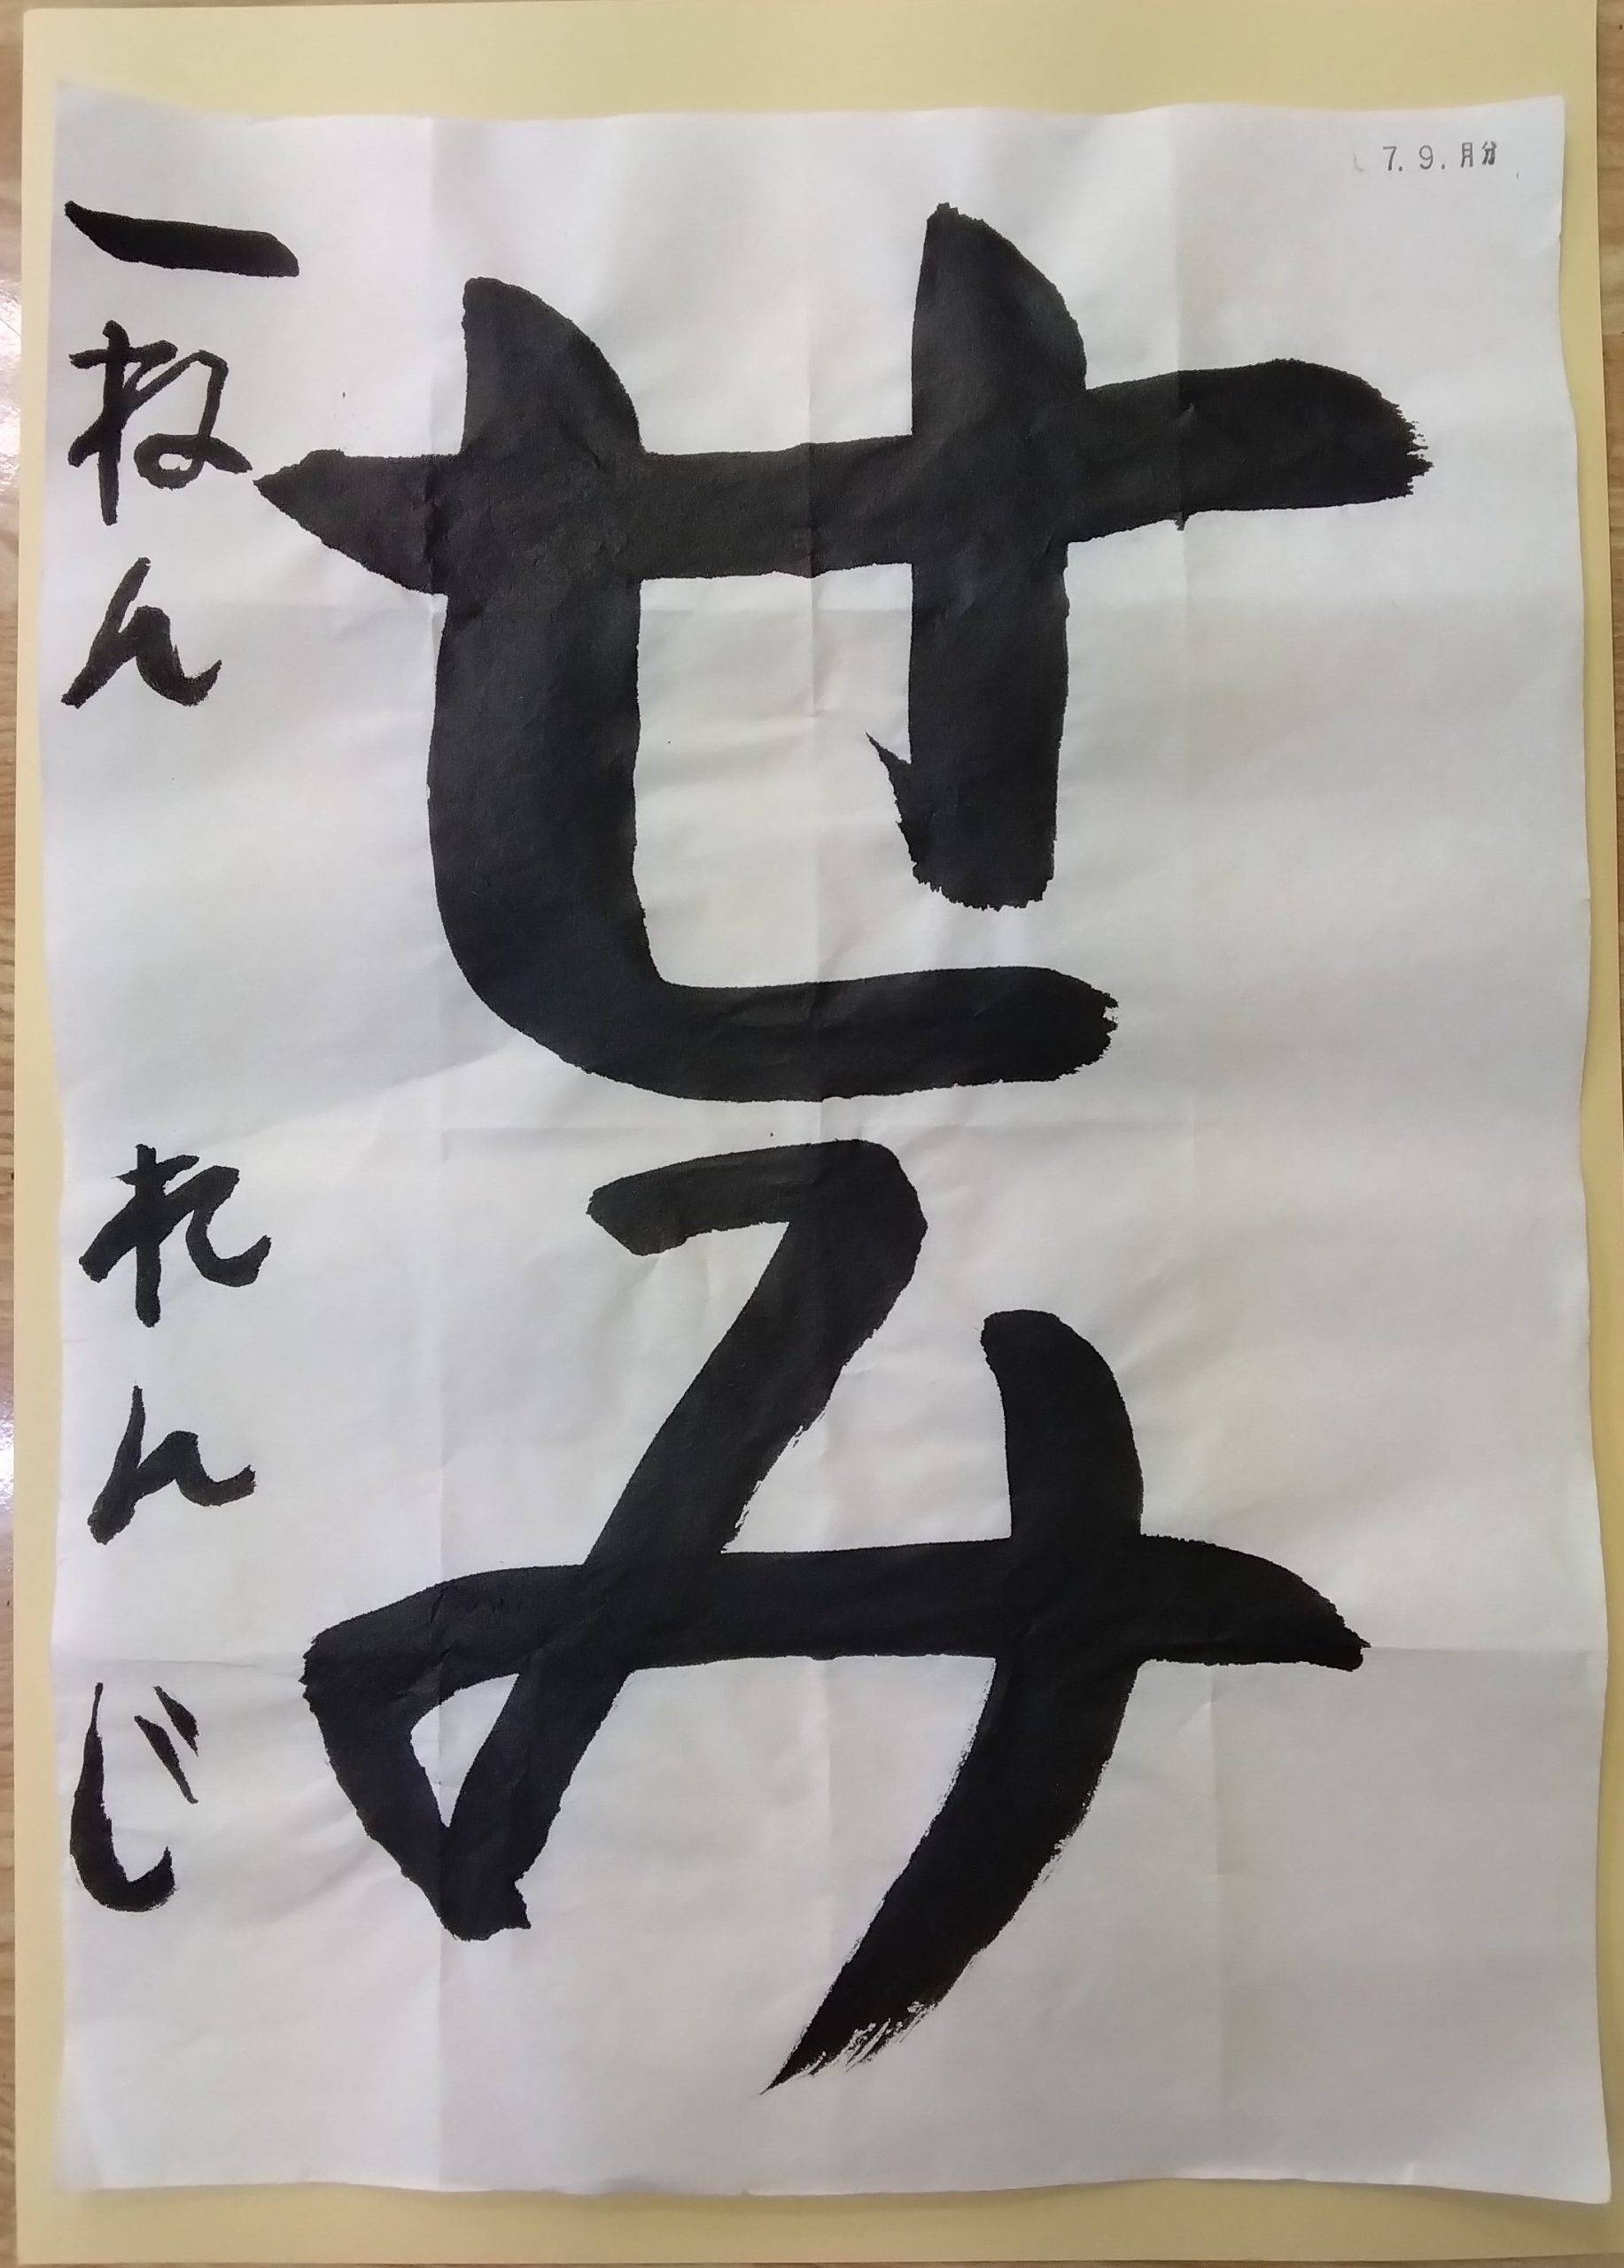 7.9.月分
せみ
一ねん れんじ